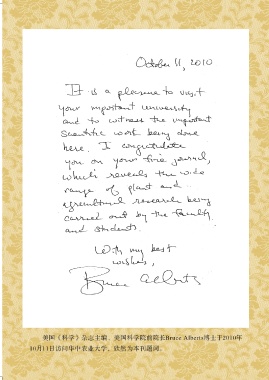 October 11, 2010
It is a pleasure to visit
your important university
and to witness the important
scientific work being done
here. I congratulate
you on your fine journal,
which reveals the wide
range of plant and
agricultural research being
carried out by the faculty
and students.
With my best
wishes,
Bruce Alberts
美国《科学》杂志主编、美国科学院前院长Bruce Alberts博士于2010年
10月11日访问华中农业大学,欣然为本刊题词。